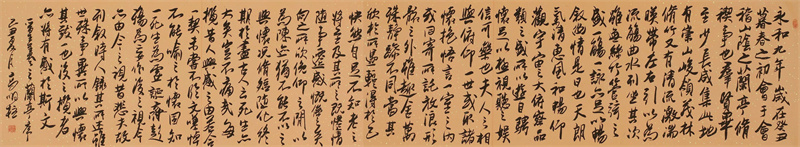 永和九年歲在癸丑
暮春之初會于會
稽山陰之蘭亭脩
禊事也羣賢畢
至少長咸集此地
有崇山峻嶺茂林
脩竹又有清流激湍
暎帶左右引以為
流觴曲水列坐其次
雖無絲竹管弦之
盛一觴一詠亦足以暢
敘幽情是日也天朗
氣清惠風和暢仰
觀宇宙之大俯察品
類之盛所以遊目騁
懷足以極視聽之娛
信可樂也夫人之相
與俯仰一世或取諸
懷抱悟言一室之內
或因寄所託放浪形
骸之外雖趣舍萬
殊靜躁不同當其
欣於所遇暫得於己
快然自足不知老之
將至及其所之既惓情
隨事遷感慨係之矣
向之所欣俛仰之間以
為陳迹猶不能不以之
興懷況脩短隨化終
期於盡古人云死生亦
大矣豈不痛哉每
攬昔人興感之由若合
一契未嘗不臨文嗟悼
不能喻之於懷固知
一死生為虛誕齊彭
殤為妄作後之視今
亦由今之視昔悲夫故
列敘時人錄其所述雖
世殊事異所以興懷
其致一也後之攬者
亦將有感於斯文
王羲之蘭亭序